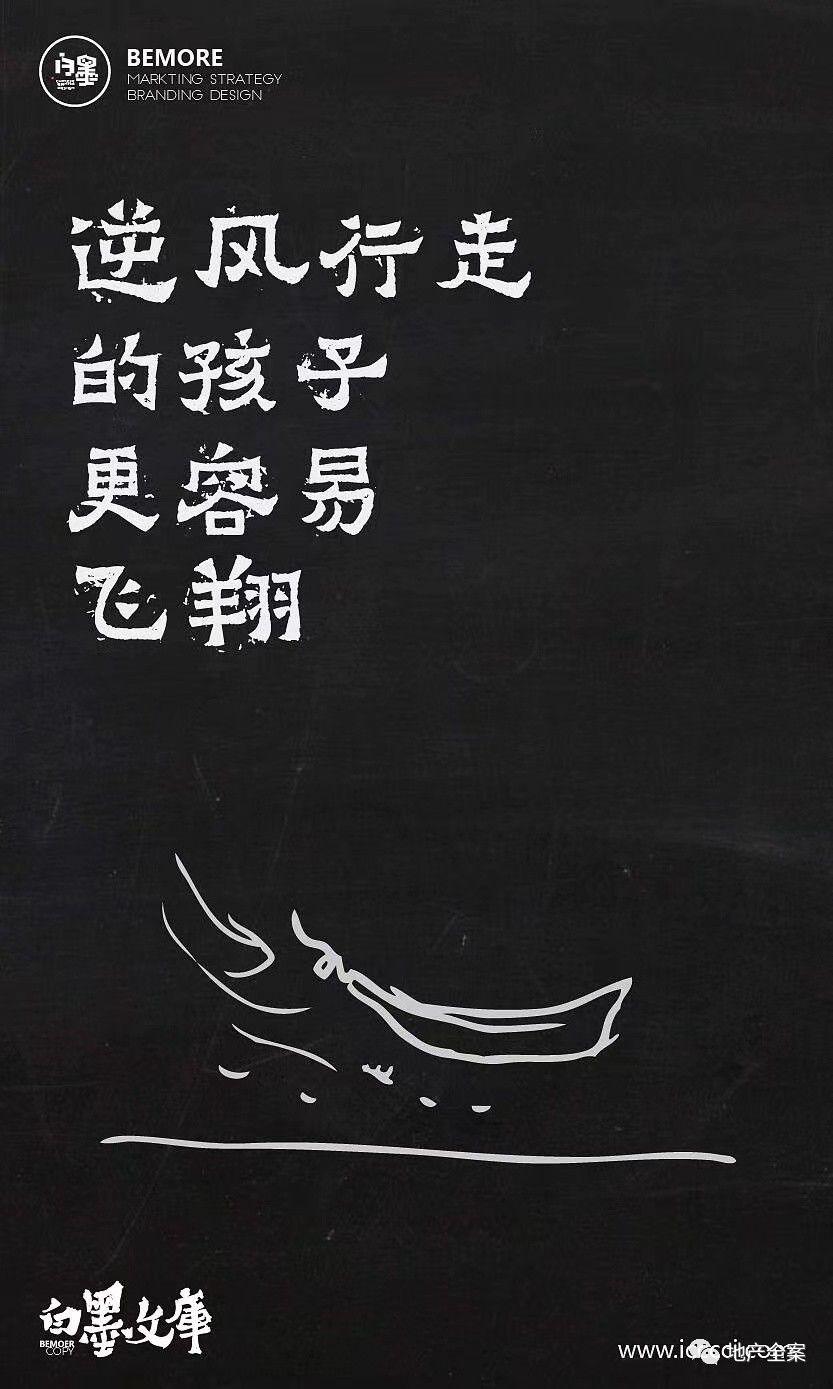 白墨
BEMORE
MARKTING STRATEGY
BRANDING DESIGN
逆风行走
的孩子
更容易
飞翔
白墨文庫
BEMOER
COPY
地产全案